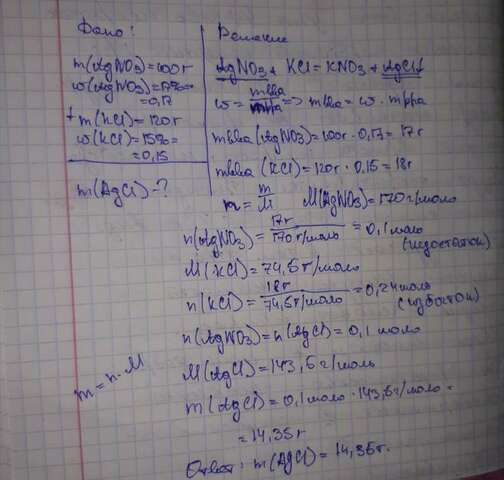 Дано:
m(AgNO3)=100г
w(AgNO3)=17%=
=0,17
+ m(KCl)=120г
w(KCl)=15%=
=0,15
m(AgCl)-?
Решение
AgNO3 + KCl = KNO3 + AgCl↓
w = mвва / mрра => mвва = w · mрра
mвва (AgNO3) = 100г · 0,17 = 17г
mвва (KCl) = 120г · 0.15 = 18г
n = m/M M(AgNO3) = 170 г/моль
n(AgNO3) = 17г / 170 г/моль = 0,1 моль
(недостаток)
M(KCl) = 74,5 г/моль
n(KCl) = 18г / 74,5 г/моль = 0,24 моль
(избыток)
n(AgNO3) = n(AgCl) = 0,1 моль
M(AgCl) = 143,5 г/моль
m = n · M
m(AgCl) = 0,1 моль · 143,5 г/моль =
= 14,35 г
Ответ: m(AgCl) = 14,35 г.